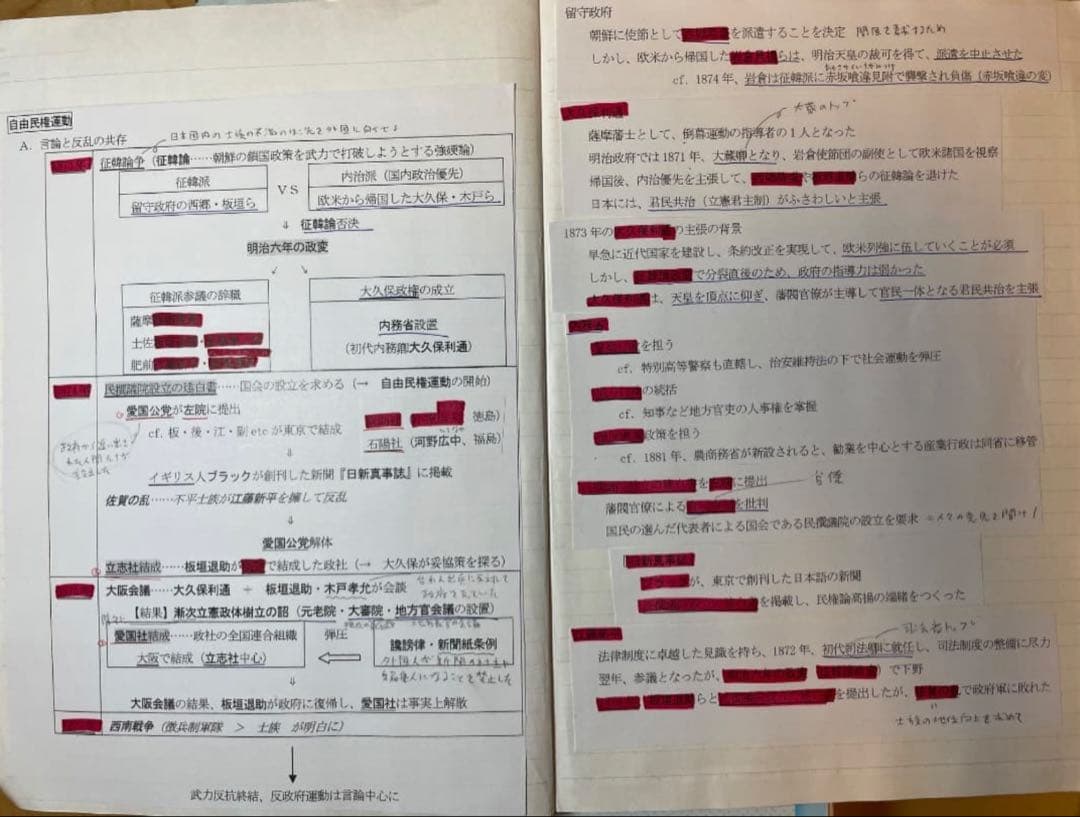 自由民権運動
A. 言論と反乱の共存
日本国内の士族の不満のはけ先を外国に向くせる
征韓論争（征韓論……朝鮮の鎖国政策を武力で打破しようとする強硬論）
征韓派
留守政府の西郷・板垣ら
VS
内治派（国内政治優先）
欧米から帰国した大久保・木戸ら
⇓ 征韓論否決
明治六年の政変
↙ ↘
征韓派参議の辞職
薩摩
土佐
肥前
大久保政権の成立
内務省設置
（初代内務卿大久保利通）
民撰議院設立の建白書……国会の設立を求める（→ 自由民権運動の開始）
愛国公党が左院に提出
cf. 板・後・江・副etcが東京で結成
徳島）
石陽社（河野広中、福島）
↓
イギリス人ブラックが創刊した新聞『日新真事誌』に掲載
佐賀の乱……不平士族が江藤新平を擁して反乱
⇓
愛国公党解体
立志社結成……板垣退助が で結成した政社（→ 大久保が妥協策を探る）
大阪会議……大久保利通 + 板垣退助・木戸孝允が会談
【結果】漸次立憲政体樹立の詔（元老院・大審院・地方官会議の設置）
愛国社結成……政社の全国連合組織
大阪で結成（立志社中心）
弾圧
⇐
讒謗律・新聞紙条例
外国人が新聞の
になることを禁止した
↓
大阪会議の結果、板垣退助が政府に復帰し、愛国社は事実上解散
西南戦争（徴兵制軍隊 ＞ 士族 が明白に）
↓
武力反抗終結、反政府運動は言論中心に
留守政府
朝鮮に使節として を派遣することを決定 開国を要求するため
しかし、欧米から帰国した らは、明治天皇の裁可を得て、派遣を中止させた
cf. 1874年、岩倉は征韓派に赤坂喰違見附で襲撃され負傷（赤坂喰違の変）
大蔵のトップ
薩摩藩士として、倒幕運動の指導者の1人となった
明治政府では1871年、大蔵卿となり、岩倉使節団の副使として欧米諸国を視察
帰国後、内治優先を主張して、 らの征韓論を退けた
日本には、君民共治（立憲君主制）がふさわしいと主張
1873年の の主張の背景
早急に近代国家を建設し、条約改正を実現して、欧米列強に伍していくことが必須
しかし、 で分裂直後のため、政府の指導力は弱かった
は、天皇を頂点に仰ぎ、藩閥官僚が主導して官民一体となる君民共治を主張
を担う
cf. 特別高等警察も直轄し、治安維持法の下で社会運動を弾圧
の統括
cf. 知事など地方官吏の人事権を掌握
政策を担う
cf. 1881年、農商務省が新設されると、勧業を中心とする産業行政は同省に移管
に提出
藩閥官僚による を批判
国民の選んだ代表者による国会である民撰議院の設立を要求
が、東京で創刊した日本語の新聞
を掲載し、民権論高揚の端緒をつくった
司法省トップ
法律制度に卓越した見識を持ち、1872年、初代司法卿に就任し、司法制度の整備に尽力
翌年、参議となったが、 で下野
らと を提出したが、 で政府軍に敗れた
士族の地位向上を求めて